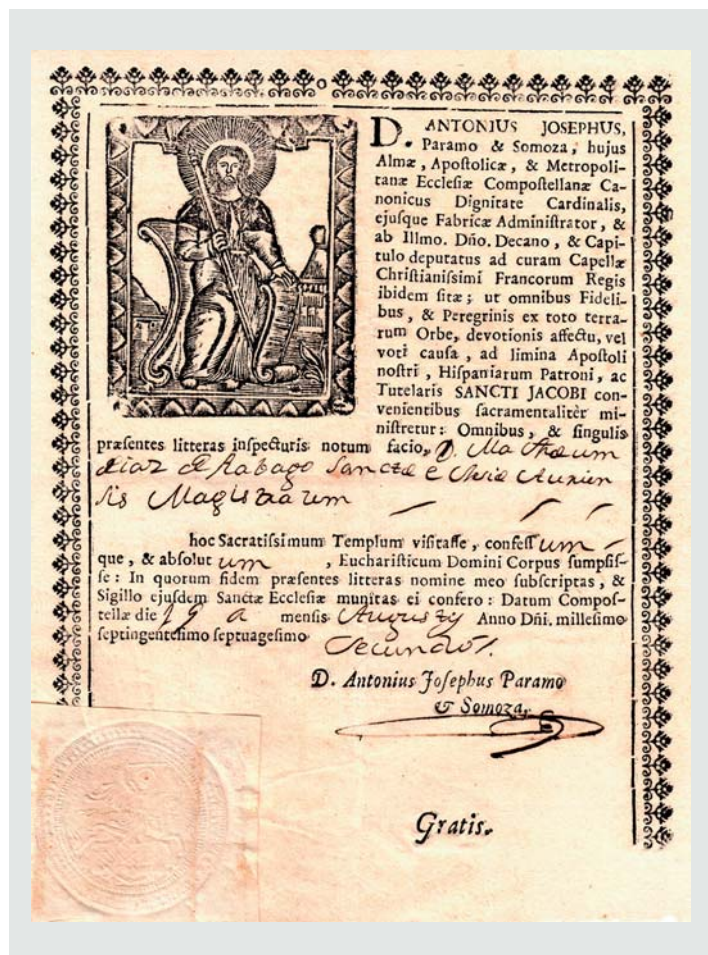 D. ANTONIUS JOSEPHUS,
Paramo & Somoza, hujus
Almæ, Apoſtolicæ, & Metropoli-
tanæ Eccleſiæ Compoſtellanæ Ca-
nonicus Dignitate Cardinalis,
ejuſque Fabricæ Adminiſtrator, &
ab Illmo. Dño. Decano, & Capi-
tulo deputatus ad curam Capellæ
Chriſtianiſſimi Francorum Regis
ibidem ſitæ; ut omnibus Fideli-
bus, & Peregrinis ex toto terra-
rum Orbe, devotionis affectu, vel
voti cauſa, ad limina Apoſtoli
noſtri, Hiſpaniarum Patroni, ac
Tutelaris SANCTI JACOBI con-
venientibus ſacramentalitèr mi-
niſtretur: Omnibus, & ſingulis
præſentes litteras inſpecturis notum facio, D. Mathæum
diaz de Rabago Sanctæ
sis Magistrarum
hoc Sacratiſſimum Templum viſitaſſe, confeſſum
que, & abſolutum, Euchariſticum Domini Corpus ſumpſiſ-
ſe: In quorum fidem præſentes litteras nomine meo ſubſcriptas, &
Sigillo ejuſdem Sanctæ Eccleſiæ munitas ei confero: Datum Compoſ-
tellæ die menſis Augusty Anno Dñi. milleſimo
ſeptingenteſimo ſeptuageſimo Secundo.
D. Antonius Joſephus Paramo
& Somoza.
Gratis.